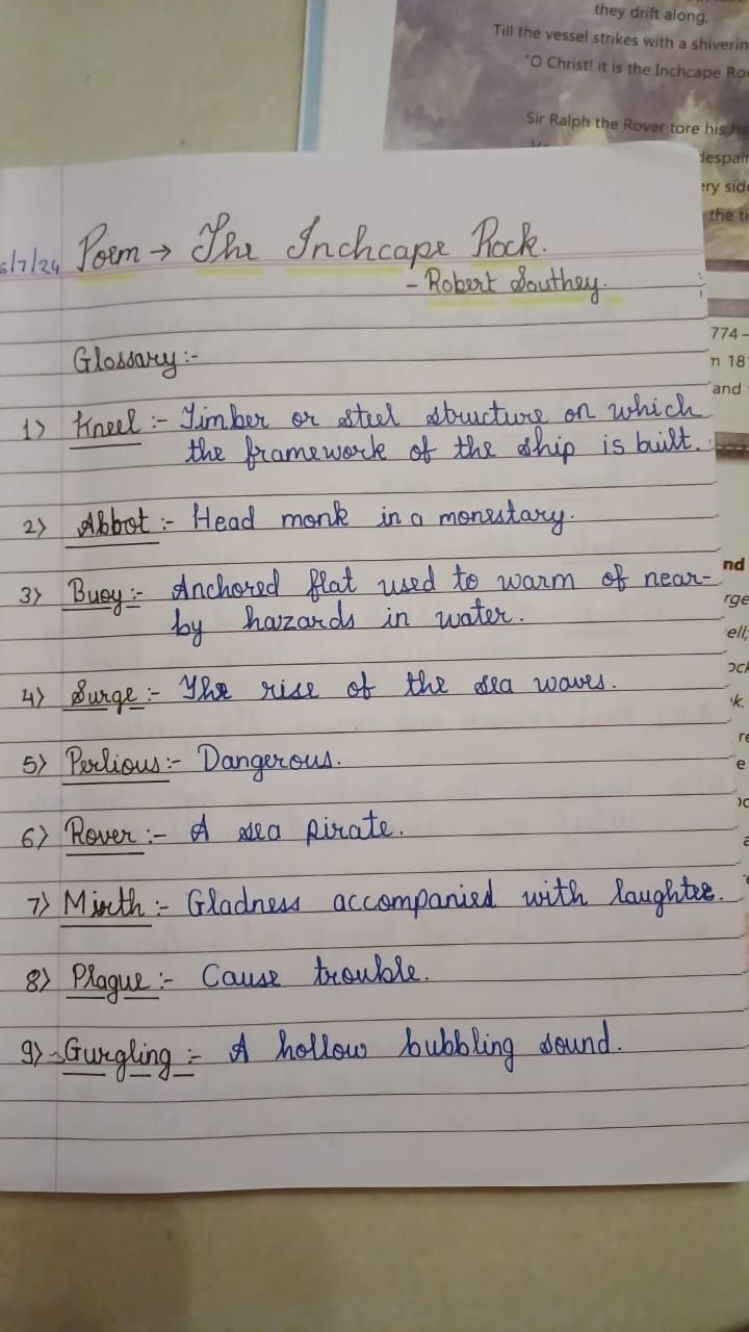 they drift along.
Till the vessel strikes with a shiverin
'O Christ! it is the Inchcape Ro
Sir Ralph the Rover tore his ha
despair
ery side
the ti
5/7/24 Poem → The Inchcape Rock.
- Robert Southey.
774-
n 18
and
Glossary:-
1) Kneel :- Timber or steel structure on which
the framework of the ship is built.
2) Abbot :- Head monk in a monestary.
3) Buoy :- Anchored flat used to warm of near-
by hazards in water.
4) Surge :- The rise of the sea waves.
5) Perlious :- Dangerous.
6) Rover :- A sea pirate.
7) Mirth :- Gladness accompanied with laughter.
8) Plague :- Cause trouble.
9) Gurgling :- A hollow bubbling sound.
nd
rge
ell;
ock
k.
re
e